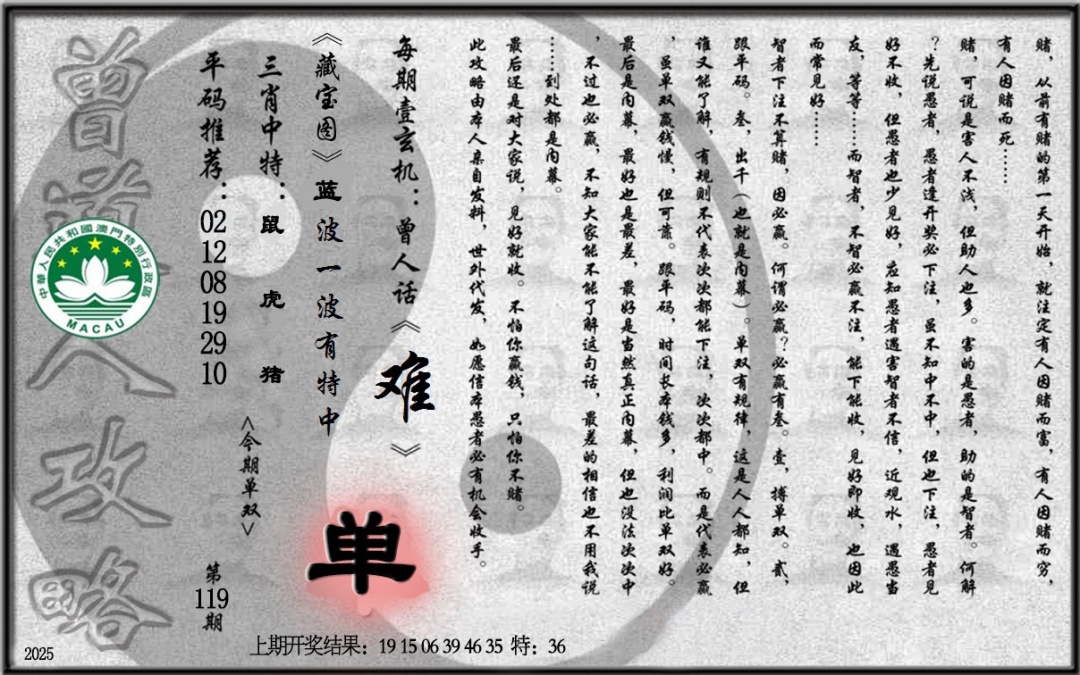 赌，从前有赌的第一天开始，就注定有人因赌而富，有人因赌而穷，
有人因赌而死……
赌，可说是害人不浅，但助人也多。害的是愚者，助的是智者。何解
？先说愚者，愚者逢开奖必下注，虽不知中不中，但也下注，愚者见
好不收，但愚者也少见好，应知愚者遇害智者不信，近观水，遇愚当
友，等等……而智者，不智必赢不注，能下能收，见好即收，也因此
而常见好……
智者下注不算赌，因必赢。何谓必赢？必赢有叁。壹，搏单双。贰，
跟平码。叁，出千（也就是内幕）。单双有规律，这是人人都知，但
谁又能了解，有规则不代表次次都能下注，次次都中。而是代表必赢
，虽单双赢钱慢，但可靠。跟平码，时间长本钱多，利润比单双好。
最后是内幕，最好也是最差，最好是当然真正内幕，但也没法次次中
，不过也必赢，不知大家能不能了解这句话，最差的相信也不用我说
……到处都是内幕。
最后还是对大家说，见好就收。不怕你赢钱，只怕你不赌。
此攻略由本人亲自发料，世外代发，如愿信本愚者必有机会收手。
每期壹玄机：曾人话《难》
《藏宝图》蓝波一波有特中
三肖中特：鼠 虎 猪
平码推荐：02 12 08 19 29 10
<今期单双>
单
第119期
曾道人攻略
中華人民共和國澳門特別行政區
MACAU
上期开奖结果：19 15 06 39 46 35 特：36
2025